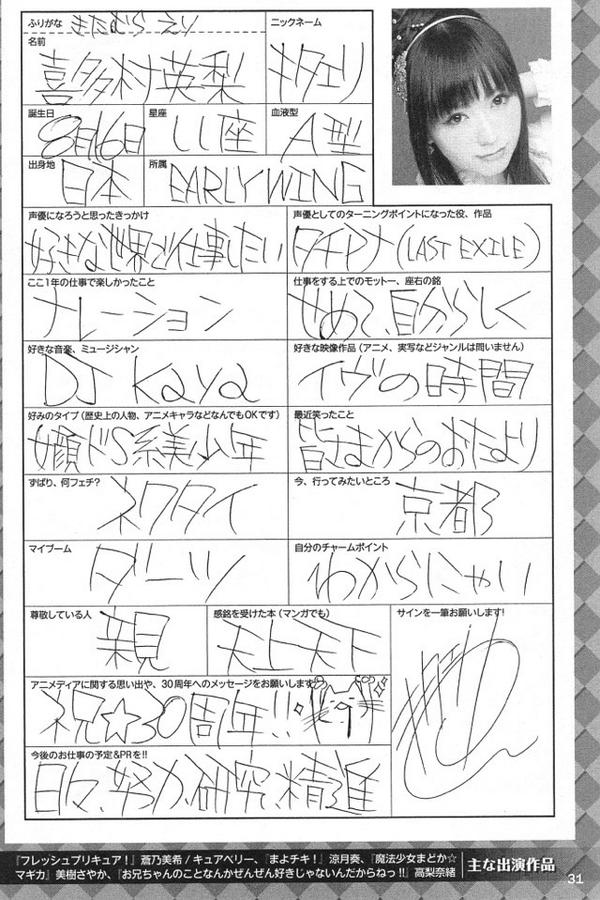 ふりがな きたむら えり
ニックネーム
名前
喜多村英梨
キタエリ
誕生日
8月16日
星座
しし座
血液型
A型
出身地
日本
所属
EARLY WING
声優になろうと思ったきっかけ
好きな世界で仕事したい
声優としてのターニングポイントになった役、作品
タチアナ(LAST EXILE)
ここ1年の仕事で楽しかったこと
ナレーション
仕事をする上でのモットー、座右の銘
せめて、自分らしく
好きな音楽、ミュージシャン
DJ Kaya
好きな映像作品(アニメ、実写などジャンルは問いません)
イヴの時間
好みのタイプ(歴史上の人物、アニメキャラなどなんでもOKです)
女顔ドS系美少年
最近笑ったこと
皆さまからのおたより
ずばり、何フェチ?
ネクタイ
今、行ってみたいところ
京都
マイブーム
ダーツ
自分のチャームポイント
わからにゃい
尊敬している人
親
感銘を受けた本(マンガでも)
天上天下
サインを一筆お願いします!
アニメディアに関する思い出や、30周年へのメッセージをお願いします
祝☆30周年!!
今後のお仕事の予定&PRを!!
日々、努力、研究、精進
『フレッシュプリキュア!』蒼乃美希/キュアベリー、『まよチキ!』涼月奏、『魔法少女まどか☆
マギカ』美樹さやか、『お兄ちゃんのことなんかぜんぜん好きじゃないんだからねっ!!』高梨奈緒
主な出演作品
31